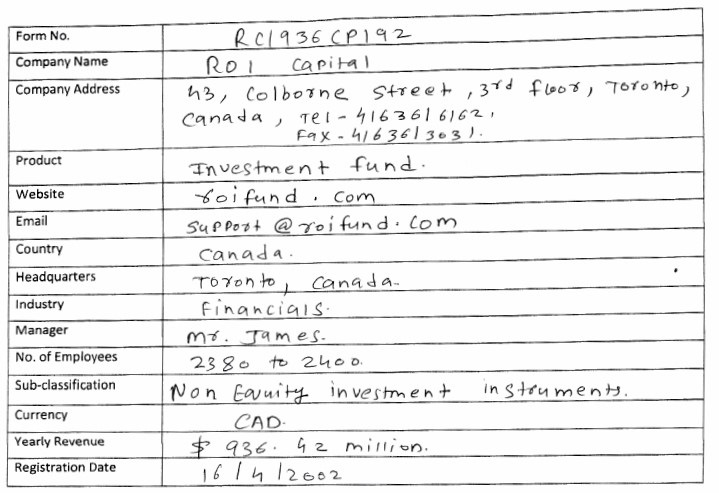 Form No. RC1936CP192
Company Name ROI Capital
Company Address 43, Colborne Street, 3rd floor, Toronto,
Canada, Tel - 4163616162,
Fax - 4163613031.
Product Investment fund.
Website roifund.com
Email support@roifund.com
Country Canada.
Headquarters Toronto, Canada.
Industry Financials.
Manager Mr. James.
No. of Employees 2380 to 2400.
Sub-classification Non Equity investment instruments.
Currency CAD.
Yearly Revenue $ 936.42 million.
Registration Date 16/4/2002